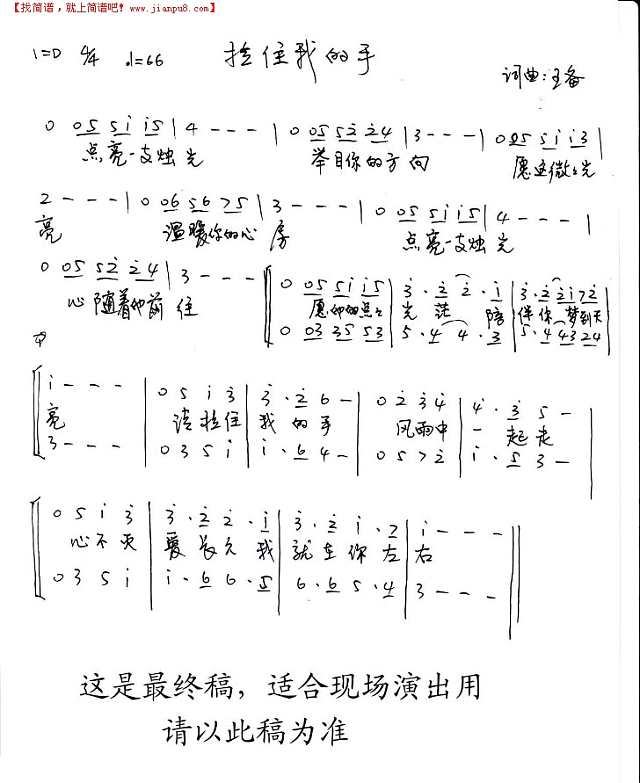 【找简谱，就上简谱吧！www.jianpu8.com】
1=D 4/4 ♩=66 拉住我的手
词曲:王备
0 05 5i i5 | 4 - - - | 0 05 52 24 | 3 - - - | 0 05 5i i3 |
点亮一支烛光 举目你的方向 愿这微微光
2 - - - | 0 06 56 75 | 3 - - - | 0 05 5i i5 | 4 - - - |
亮 温暖你的心房 点亮一支烛光
0 05 52 24 | 3 - - - | 0 05 5i i5 | 3 · 2 2 · i | 3 · 2 2i72 |
心随着你前往 愿你的点点 光茫 陪 伴你梦到天
0 03 35 53 | 5 · 4 4 · 3 | 5 · 4 4324
i - - - | 0 5 i 3 | 3 · 2 6 - | 0 2 3 4 | 4 · 3 5 - |
亮 请拉住 我的手 风雨中 一起走
3 - - - | 0 3 5 i | i · 6 4 - | 0 5 7 2 | i · 5 3 - |
0 5 i 3 | 3 · 2 2 · i | 3 · 2 i · 2 | i - - - ||
心不灭 爱长久 我 就在你左 右
0 3 5 i | i · 6 6 · 5 | 6 · 6 5 · 4 | 3 - - - ||
这是最终稿，适合现场演出用
请以此稿为准